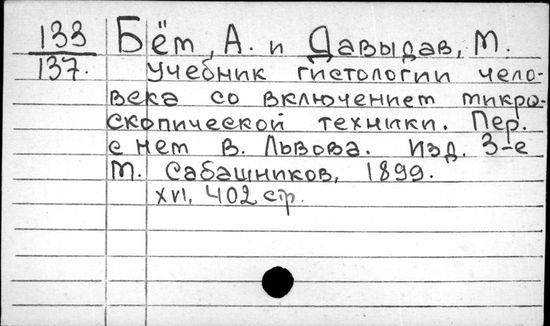 133 Бём, А. и Давыдав, М.
137. Учебник гистологии чело-
века со включением микро-
скопической техники. Пер.
с нем В. Львова. Изд. 3-е
М. Сабашников, 1899.
XVI, 402 стр.